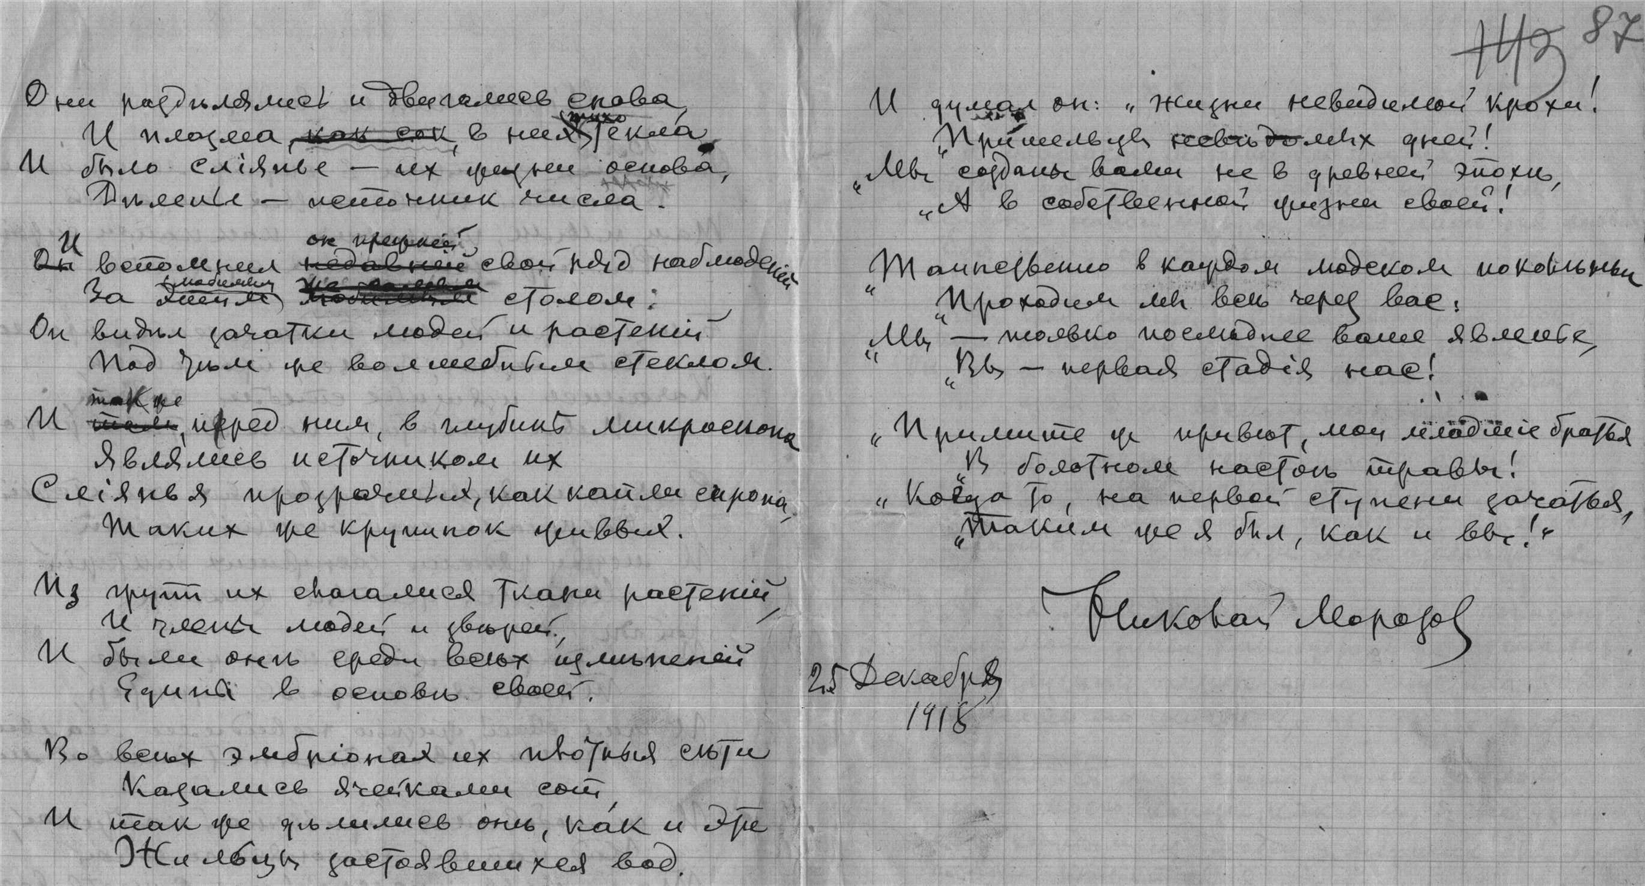 Они раздѣлялись и двигались снова,
И плазма, как сок, в них тихо текла,
И было сліянье — их жизни основа,
Дѣленье — источник числа.
И вспомнил он прежній свой ряд наблюденій
За своим столом:
Он видѣл зачатки людей и растеній
Под тѣм же волшебным стеклом.
И так же, перед ним, в глубинѣ микроскопа
Являлись источником их
Сліянья прозрачных, как капли сиропа,
Таких же крупинок живых.
Из групп их слагалися ткани растеній,
И члены людей и звѣрей,
И были онѣ среди всѣх измѣненій
Едины в основѣ своей.
Во всѣх эмбріонах их плотныя сѣти
Казались ячейками сот,
И так же дѣлились онѣ, как и эти
Жильцы застоявшихся вод.
87
И думал он: „Жизни невидимой крохи!
„Пришельцы невѣдомых дней!
„Мы созданы вами не в древней эпохѣ,
„А в собственной жизни своей!
„Таинственно в каждом людском поколѣньи
„Проходим мы всѣ через вас:
„Мы — только послѣднее ваше явленье,
„Вы — первая стадія нас!
„Примите ж привѣт, мои младшіе братья
„В болотном настоѣ травы!
„Когда то, на первой ступени зачатья,
„Таким же я был, как и вы!“
Николай Морозов
25 Декабря
1918